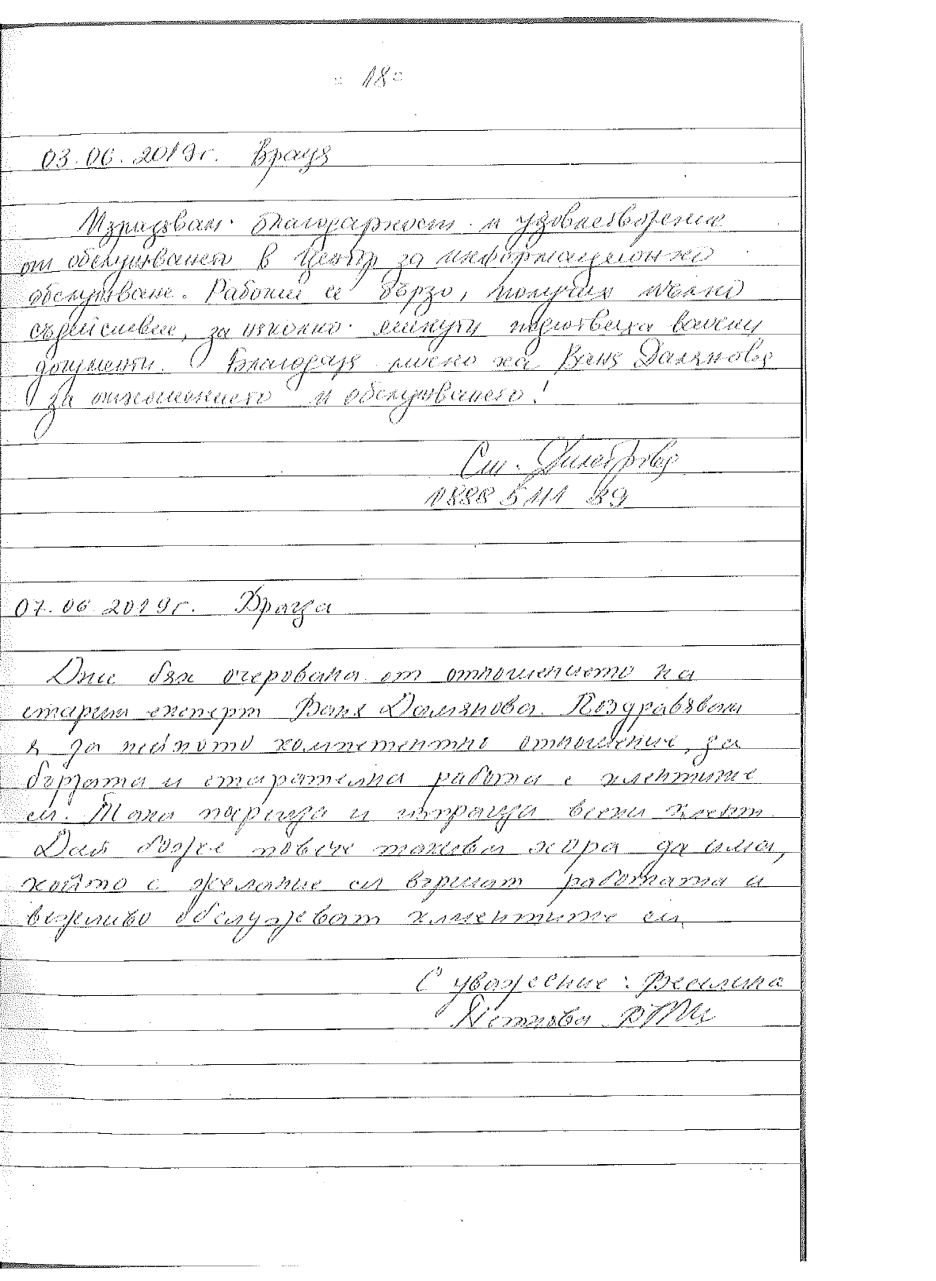 - 18 -
03.06.2019г. Враца
Изразявам благодарност и удовлетворение
от обслужването в Център за информационно
обслужване. Работи се бързо, получих пълно
съдействие, за няколко минути подготвиха важни
документи. Благодаря лично на Ваня Далянова
за отношението и обслужването!
Ст. Димитрова
0888 5111 39
07.06.2019г. Враца
Днес бях очарована от отношението на
старши експерт Ваня Далянова. Поздравявам
я за нейното компетентно отношение, за
бързата и старателна работа с клиентите
си. Така посреща и изпраща всеки клиент.
Дай Боже повече такива хора да има,
който с желание си вършат работата и
вежливо обслужват клиентите си.
С уважение: Веселина
Петкова